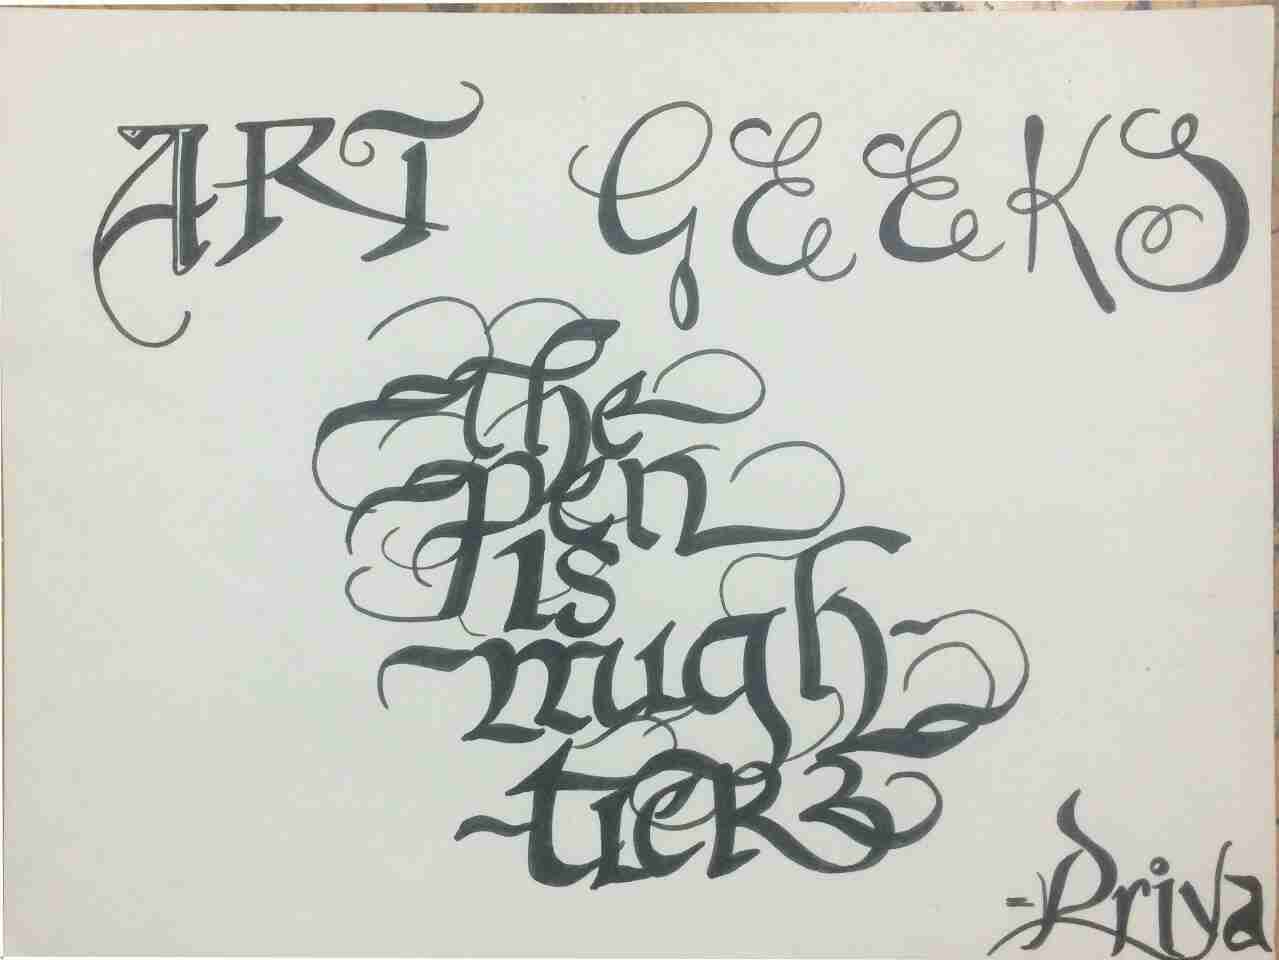 ART GEEKS
the
pen
is
migh
tier
- Priya